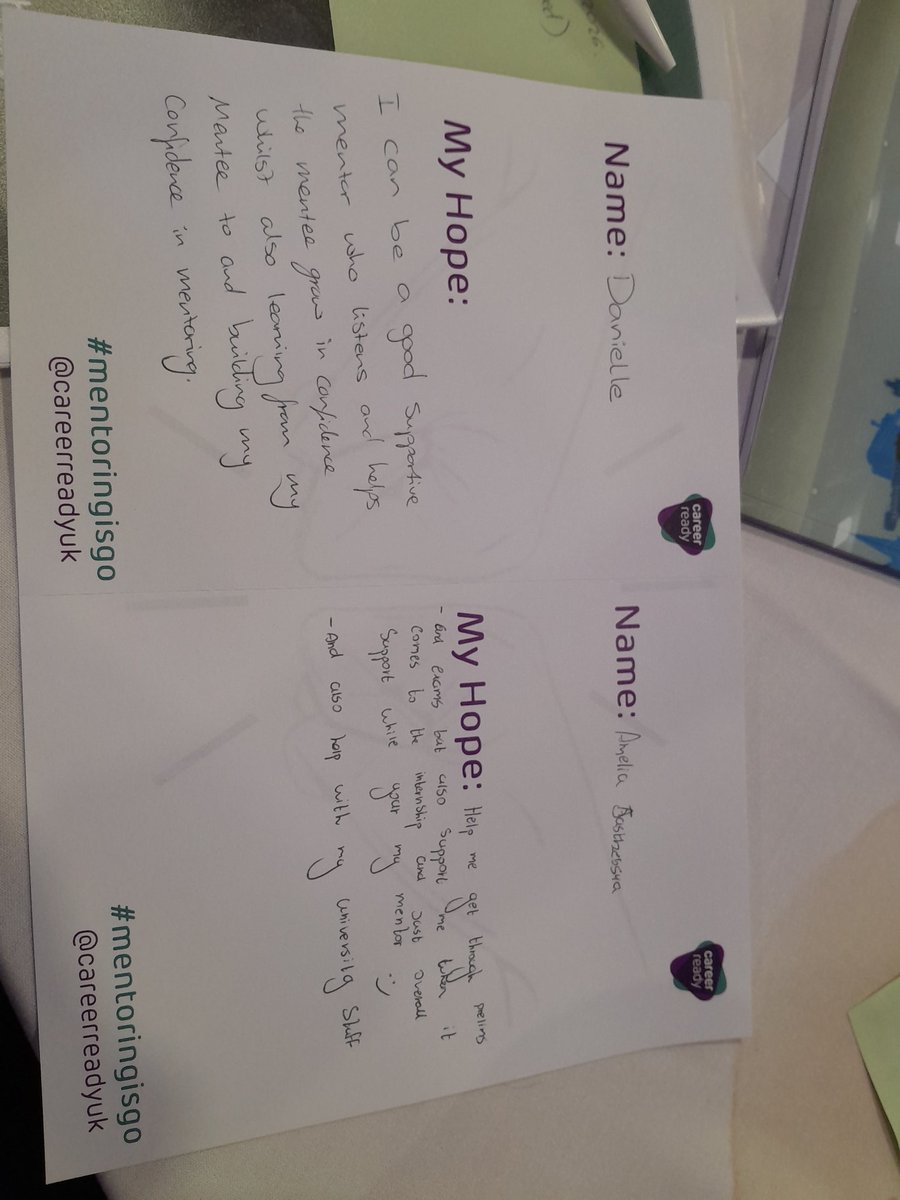 Name: Danielle
career
ready
My Hope:
I can be a good supportive
mentor who listens and helps
the mentee grow in confidence
whilst also learning from my
Mentee to and building my
Confidence in mentoring.
#mentoringisgo
@careerreadyuk
Name: Amelia
career
ready
My Hope: Help me get through prelims
- and exams but also support me when it
comes to the internship and Just overall
Support while your my mentor :)
- And also help with my university stuff
#mentoringisgo
@careerreadyuk